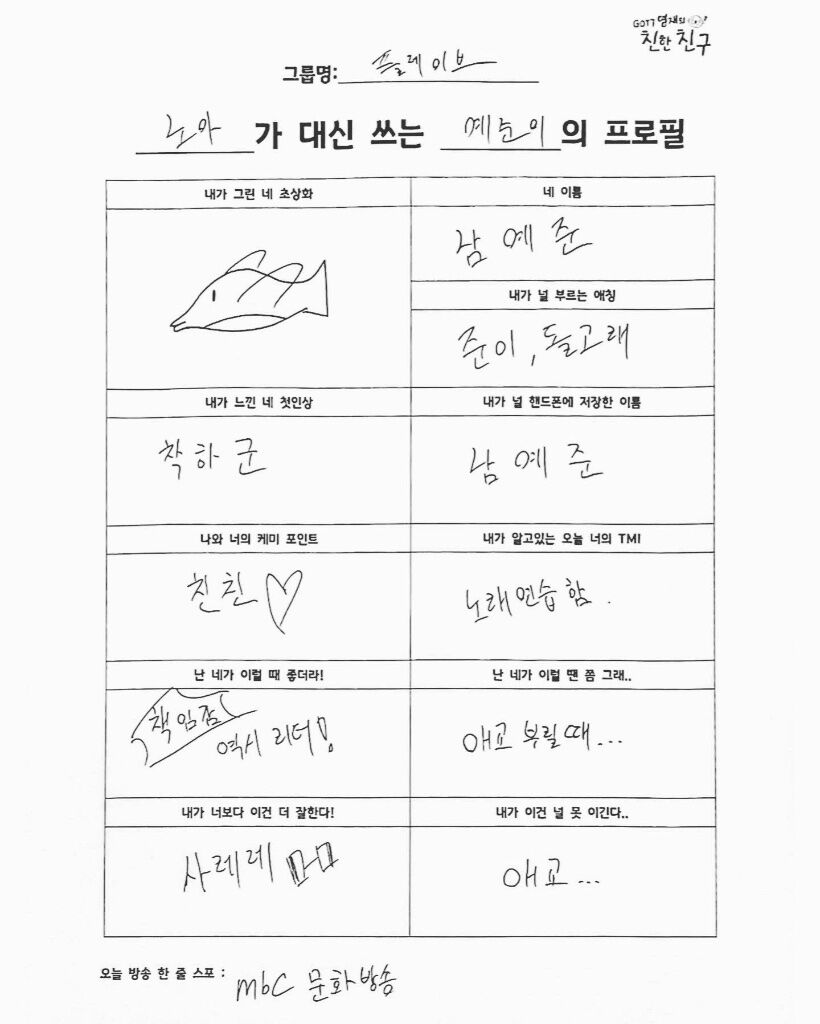 GOT7 영재의
친한 친구
그룹명: 플레이브
노아가 대신 쓰는 예준이의 프로필
내가 그린 네 초상화
네 이름
남예준
내가 널 부르는 애칭
준이, 돌고래
내가 느낀 네 첫인상
착하군
내가 널 핸드폰에 저장한 이름
남예준
나와 너의 케미 포인트
친친♡
내가 알고있는 오늘 너의 TMI
노래연습 함.
난 네가 이럴 때 좋더라!
책임감
역시 리더!
난 네가 이럴 땐 쫌 그래..
애교 부릴 때...
내가 너보다 이건 더 잘한다!
사레레
내가 이건 널 못 이긴다..
애교...
오늘 방송 한 줄 스포 : mbC 문화방송